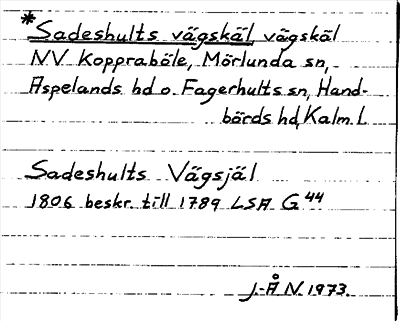 * Sadeshults vägskäl, vägskäl
NV Koppraböle, Mörlunda sn,
Aspelands hd o. Fagerhults sn, Hand-
börds hd, Kalm. l.
Sadeshults Vägsjäl
1806 beskr. till 1789 LSA G 44
J.-Å N. 1973.